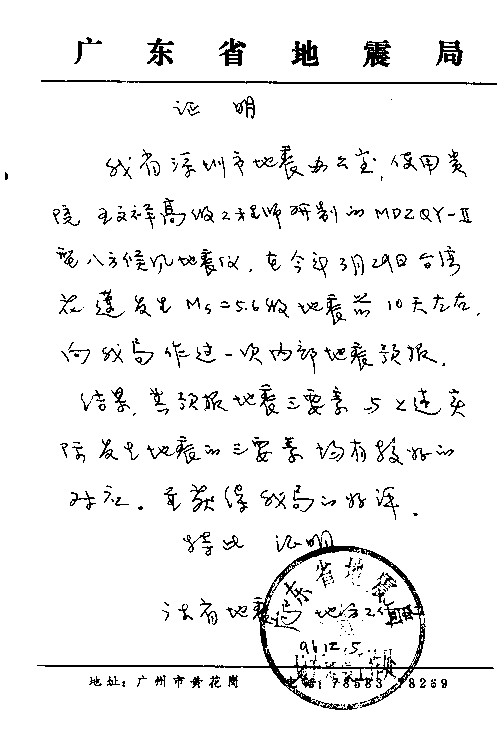 广东省地震局
证明
我省深圳市地震办公室,使用贵
院王文祥高级工程师研制的MDZQY-II
型八方候风地震仪,在今年3月29日台湾
花莲发生Ms=5.6级地震前10天左右,
向我局作过一次内部地震预报。
结果,其预报地震三要素与上述实
际发生地震的三要素均有较好的
对应。并获得我局的好评。
特此 证明
广东省地震局 地方工作
广东省地震局
96.12.5
工作处
地址:广州市黄花岗 电话:78583 78269